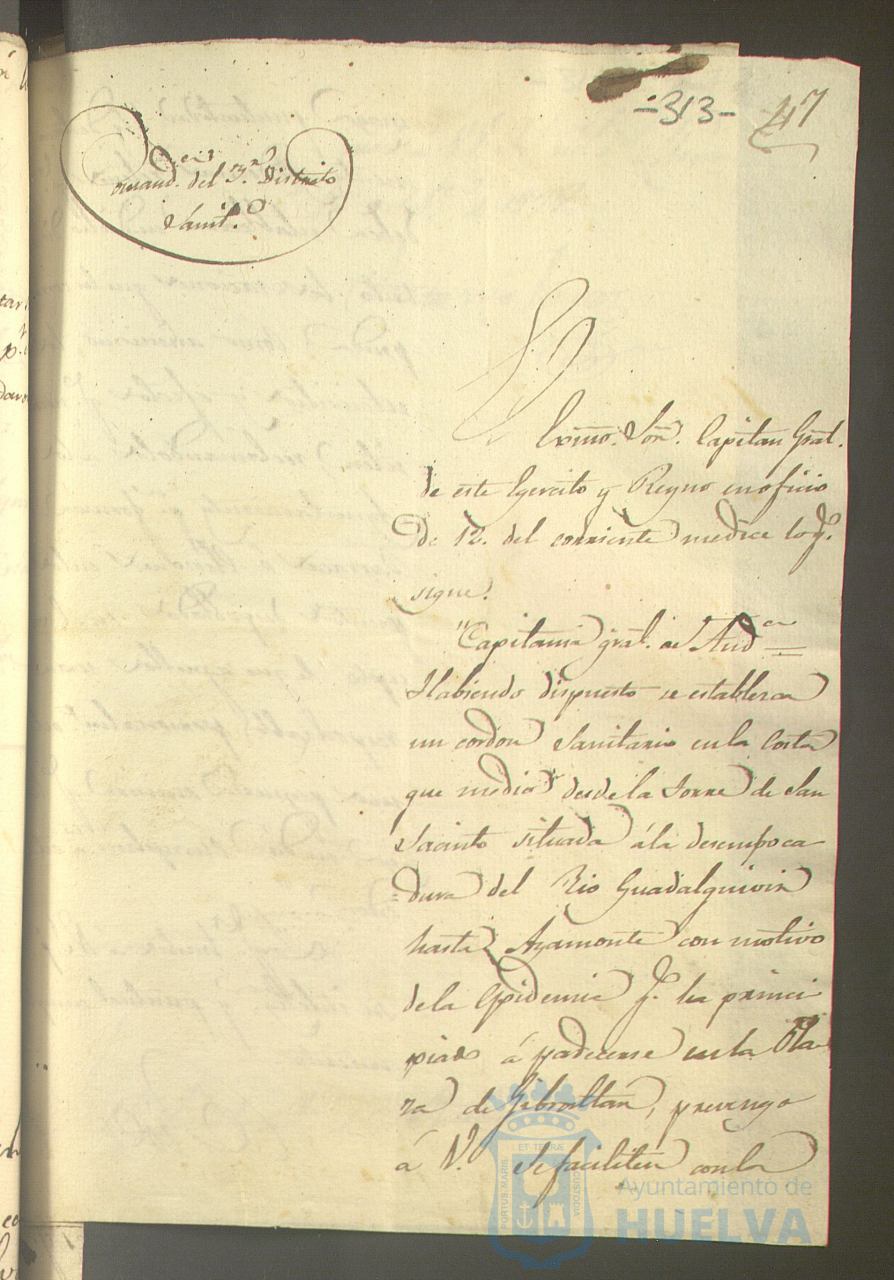 -313- 47
Comand.cia del 3.er Distrito
Sanit.o
El Exmo. Sor. Capitan Gral.
de este Egercito y Reyno en oficio
de 12. del corriente me dice lo q.e
sigue.
"Capitania gral. de And.cia =
Habiendo dispuesto se establezca
un cordon Sanitario en la Costa
que media desde la Torre de San
Jacinto situada á la desemboca
=dura del Rio Guadalquivir
hasta Ayamonte con motivo
de la Epidemia q.e ha princi
piado á padecerse en la Pla
za de Gibraltar, prevengo
á V. se faciliten con la
PORTUS MARIS ET TERRAE CUSTODIA
Ayuntamiento de
HUELVA